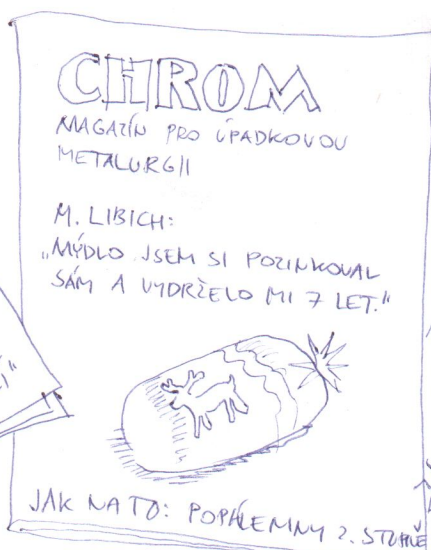 CHROM
MAGAZÍN PRO ÚPADKOVOU
METALURGII
M. LIBICH:
„MÝDLO JSEM SI POZINKOVAL
SÁM A VYDRŽELO MI 7 LET."
JAK NA TO: POPÁLENINY 2. STUPNĚ